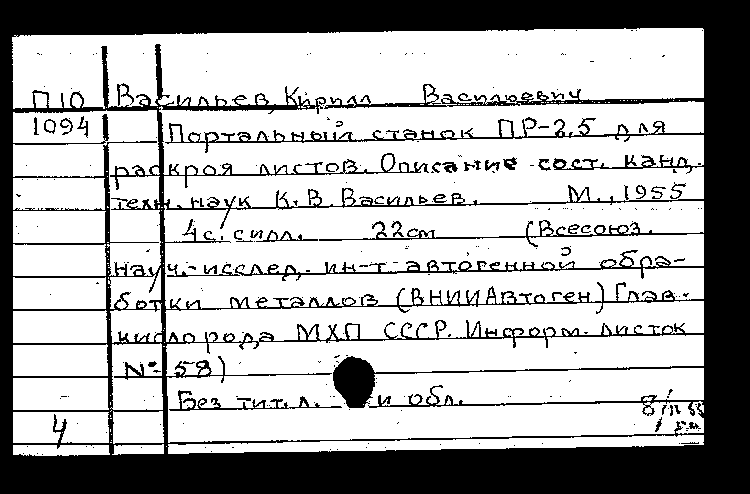 П10 Васильев, Кирилл Васильевич
1094 Портальный станок ПР-2,5 для
раскроя листов. Описание сост. канд.
техн. наук К. В. Васильев. М., 1955
4с. с илл. 22см (Всесоюз.
науч.-исслед. ин-т автогенной обра-
ботки металлов (ВНИИАвтоген) Глав-
кислорода МХП СССР. Информ. листок
№ 58)
Без тит. л. и обл.
4